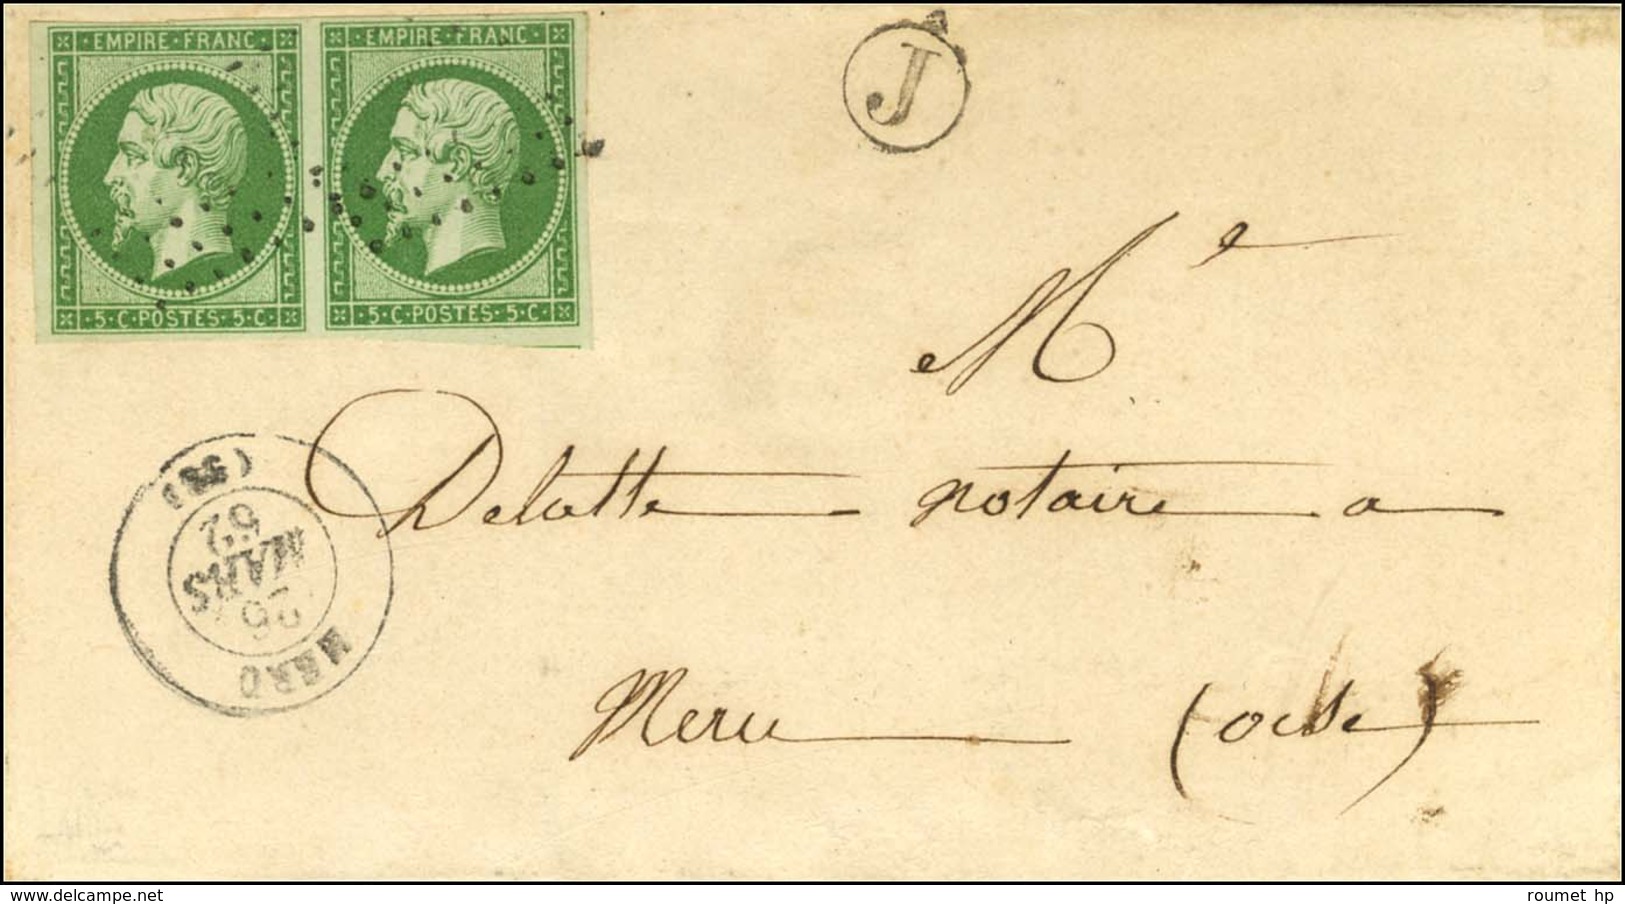 EMPIRE·FRANC· EMPIRE·FRANC·
J
·5·C·POSTES·5·C· ·5·C·POSTES·5·C·
Me
Delatte notaire a
MERU
26
MARS
62
Meru (oise)
roumet hp